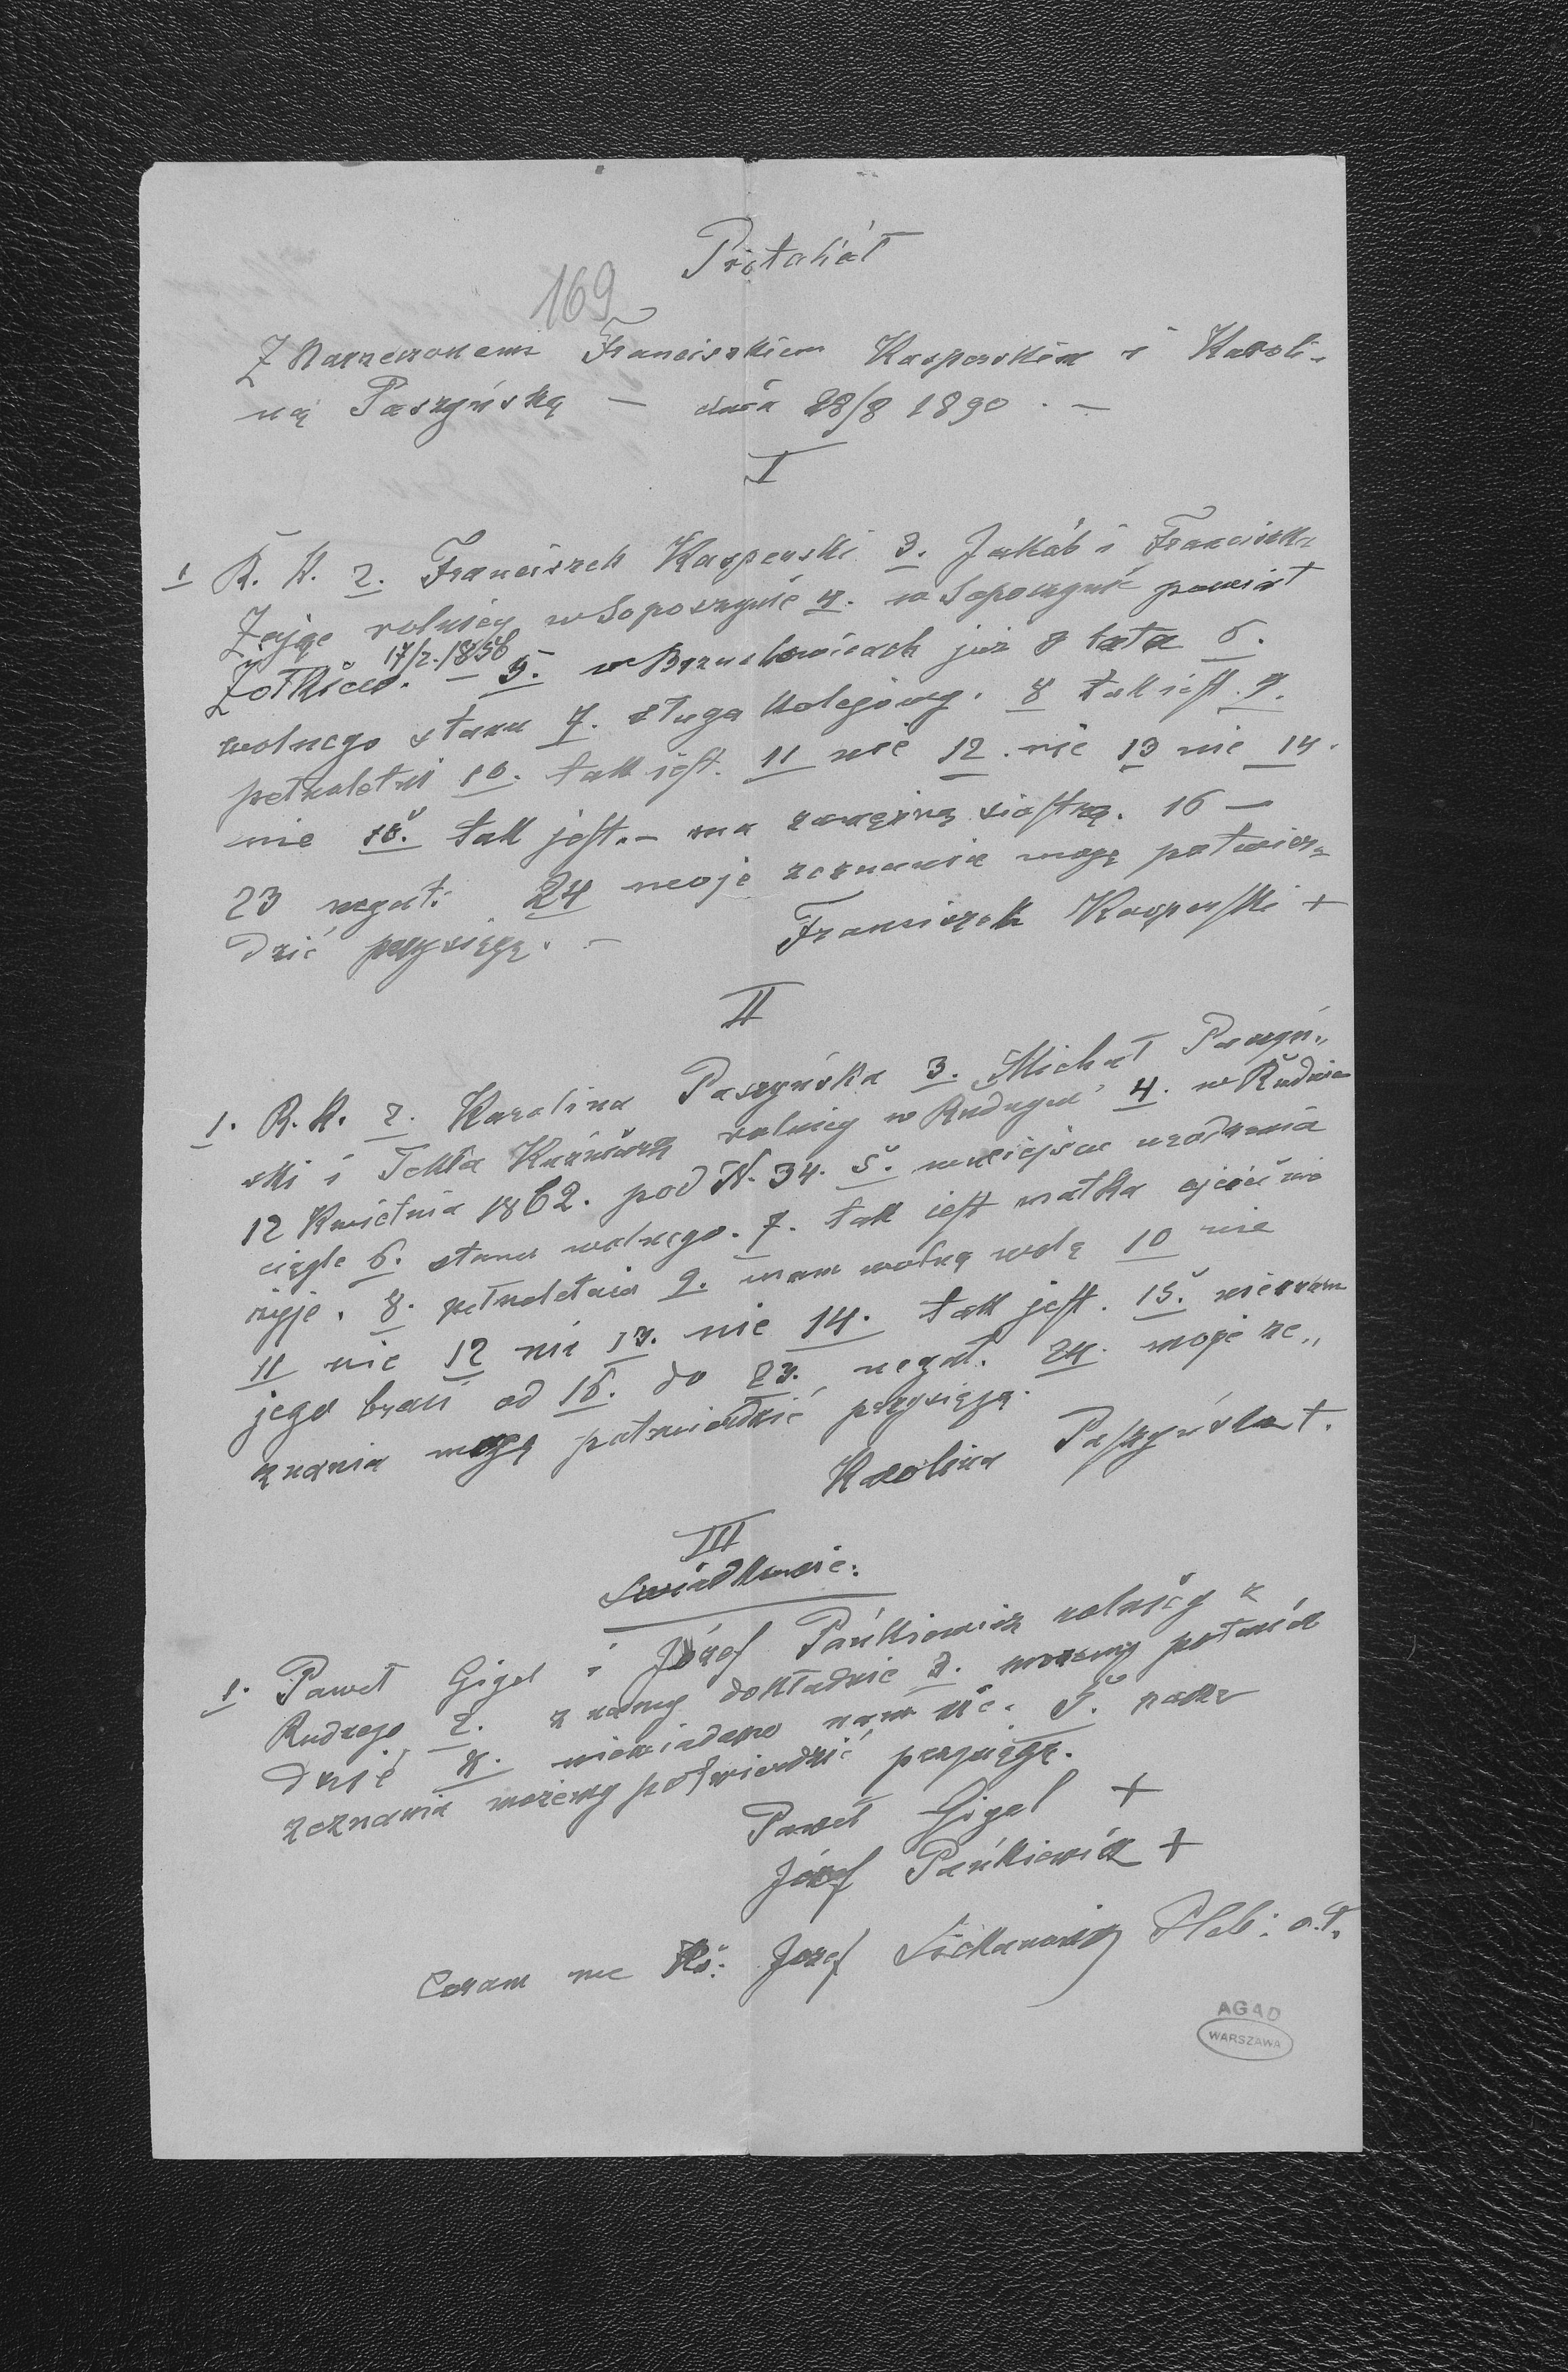 Protokół
169
Z Narzeczonemi Franciszkiem Kasperskim i Karoli-
ną Paszyńską — dnia 28/8 1890. —
I
1 R. K. 2. Franciszek Kasperski 3. Jakób i Franciszka
Zając rolnicy w Soposzynie 4. w Soposzynie powiat
17/2. 1856
Żółkiew. — 5. w już 8 lata 6.
wolnego stanu 7. sługa kolejowy. 8 tak jest. 9.
pełnoletni 10. tak jest. 11 nie 12. nie 13 nie 14.
nie 15. tak jest. — ma zamężną siostrę. 16 —
23 negat: 24 moje zeznania mogę potwier-
dzić przysięgą. — Franciszek Kasperski +
II
1. R. K. 2. Karolina Paszyńska 3. Michał Paszyń„
ski i Tekla rolnicy w 4. w
12 Kwietnia 1862. pod N. 34. 5. w miejscu urodzenia
ciągle 6. stanu wolnego. 7. tak jest matka ojciec nie
żyje. 8. pełnoletnia 9. mam wolną wolę 10 nie
11 nie 12 nie 13. nie 14. tak jest. 15.
jego brać od 16. do 23. negat. 24. moje ze„
znania mogę potwierdzić przysięgą.
Karolina Paszyńska +.
III
Świadkowie:
1. Paweł Gigel i Józef Pańkiewicz rolnicy z
2. znamy dokładnie 3. możemy potwier
dzić 4. niewiadomo nam nic. 5. nasze
zeznania możemy potwierdzić przysięgą.
Paweł Gigel +
Józef Pańkiewicz +
Coram me Ks: Józef Pleb:
AGAD
WARSZAWA